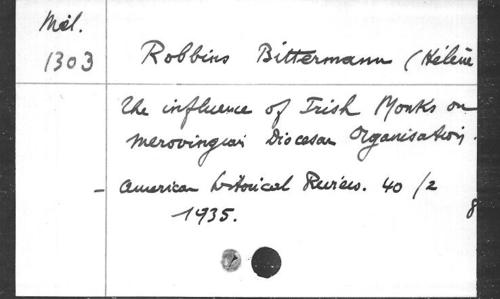 Mél.
1303
Robbins Bittermann (Hélène
The influence of Irish Monks on
Merovingian Diocesan Organisation.
- American historical Review. 40/2
1935.
8